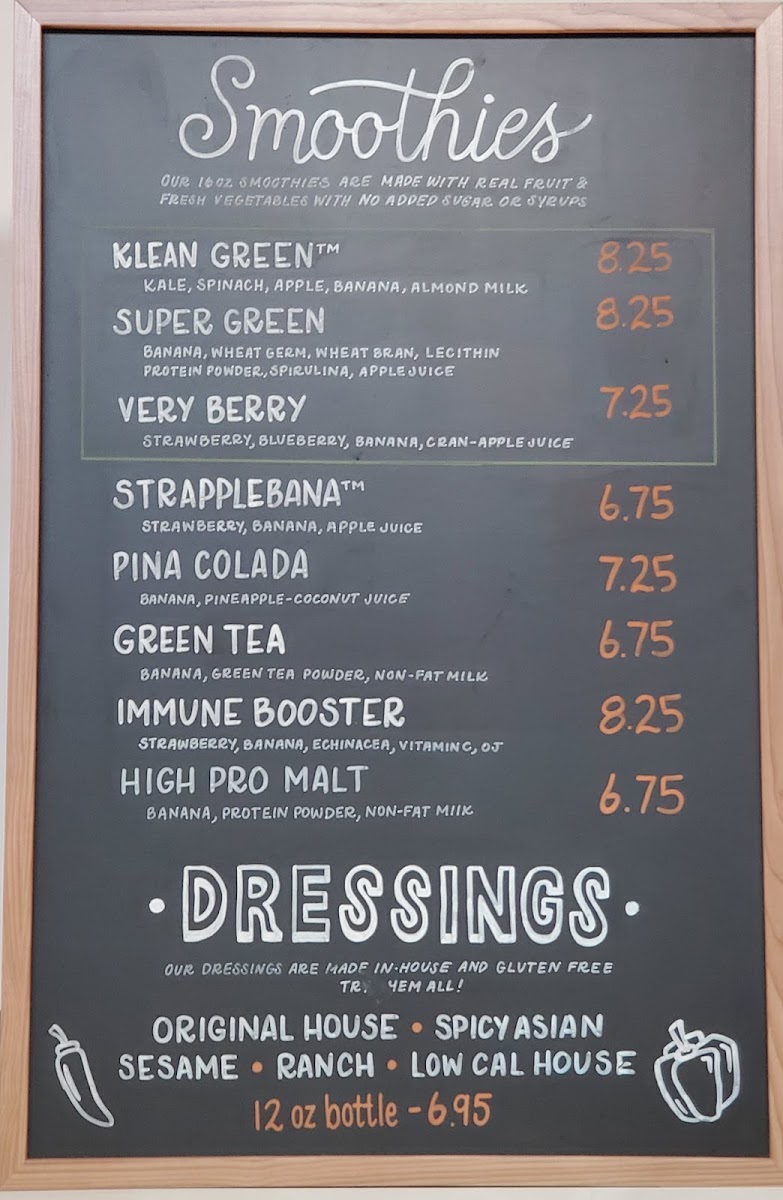 Smoothies
OUR 16 OZ SMOOTHIES ARE MADE WITH REAL FRUIT &
FRESH VEGETABLES WITH NO ADDED SUGAR OR SYRUPS
KLEAN GREEN™ 8.25
KALE, SPINACH, APPLE, BANANA, ALMOND MILK
SUPER GREEN 8.25
BANANA, WHEAT GERM, WHEAT BRAN, LECITHIN
PROTEIN POWDER, SPIRULINA, APPLE JUICE
VERY BERRY 7.25
STRAWBERRY, BLUEBERRY, BANANA, CRAN-APPLE JUICE
STRAPPLEBANA™ 6.75
STRAWBERRY, BANANA, APPLE JUICE
PINA COLADA 7.25
BANANA, PINEAPPLE-COCONUT JUICE
GREEN TEA 6.75
BANANA, GREEN TEA POWDER, NON-FAT MILK
IMMUNE BOOSTER 8.25
STRAWBERRY, BANANA, ECHINACEA, VITAMIN C, OJ
HIGH PRO MALT 6.75
BANANA, PROTEIN POWDER, NON-FAT MILK
• DRESSINGS •
OUR DRESSINGS ARE MADE IN-HOUSE AND GLUTEN FREE
ALL!
ORIGINAL HOUSE • SPICY ASIAN
SESAME • RANCH • LOW CAL HOUSE
12 oz bottle - 6.95